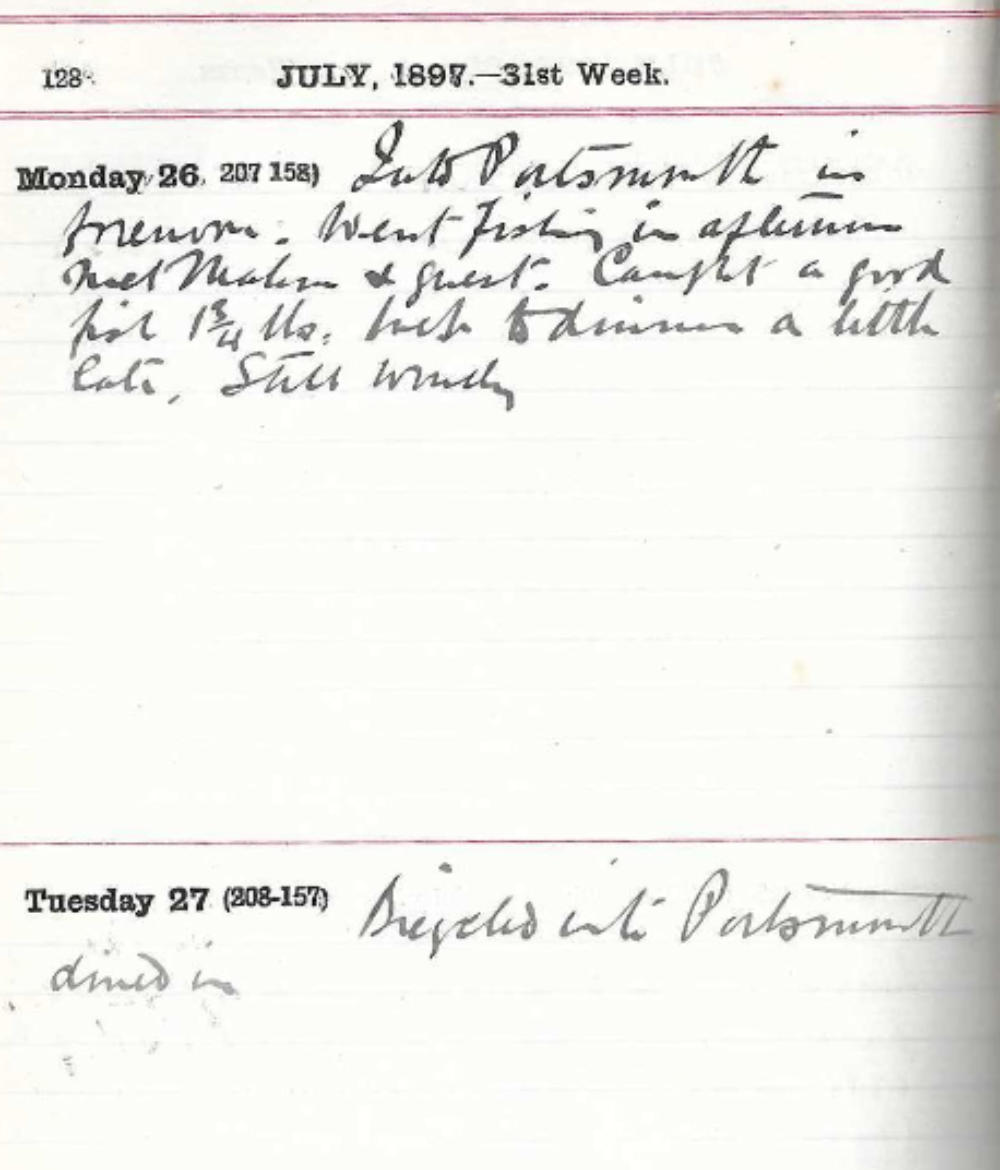 128
JULY, 1897.—31st Week.
Monday 26. 207 158) Into Portsmouth in
forenoon. Went fishing in afternoon
met & guest. Caught a good
fish 1¾ lbs. back to dinner a little
late, Still windy
Tuesday 27 (208-157) Bicycled into Portsmouth
dined in